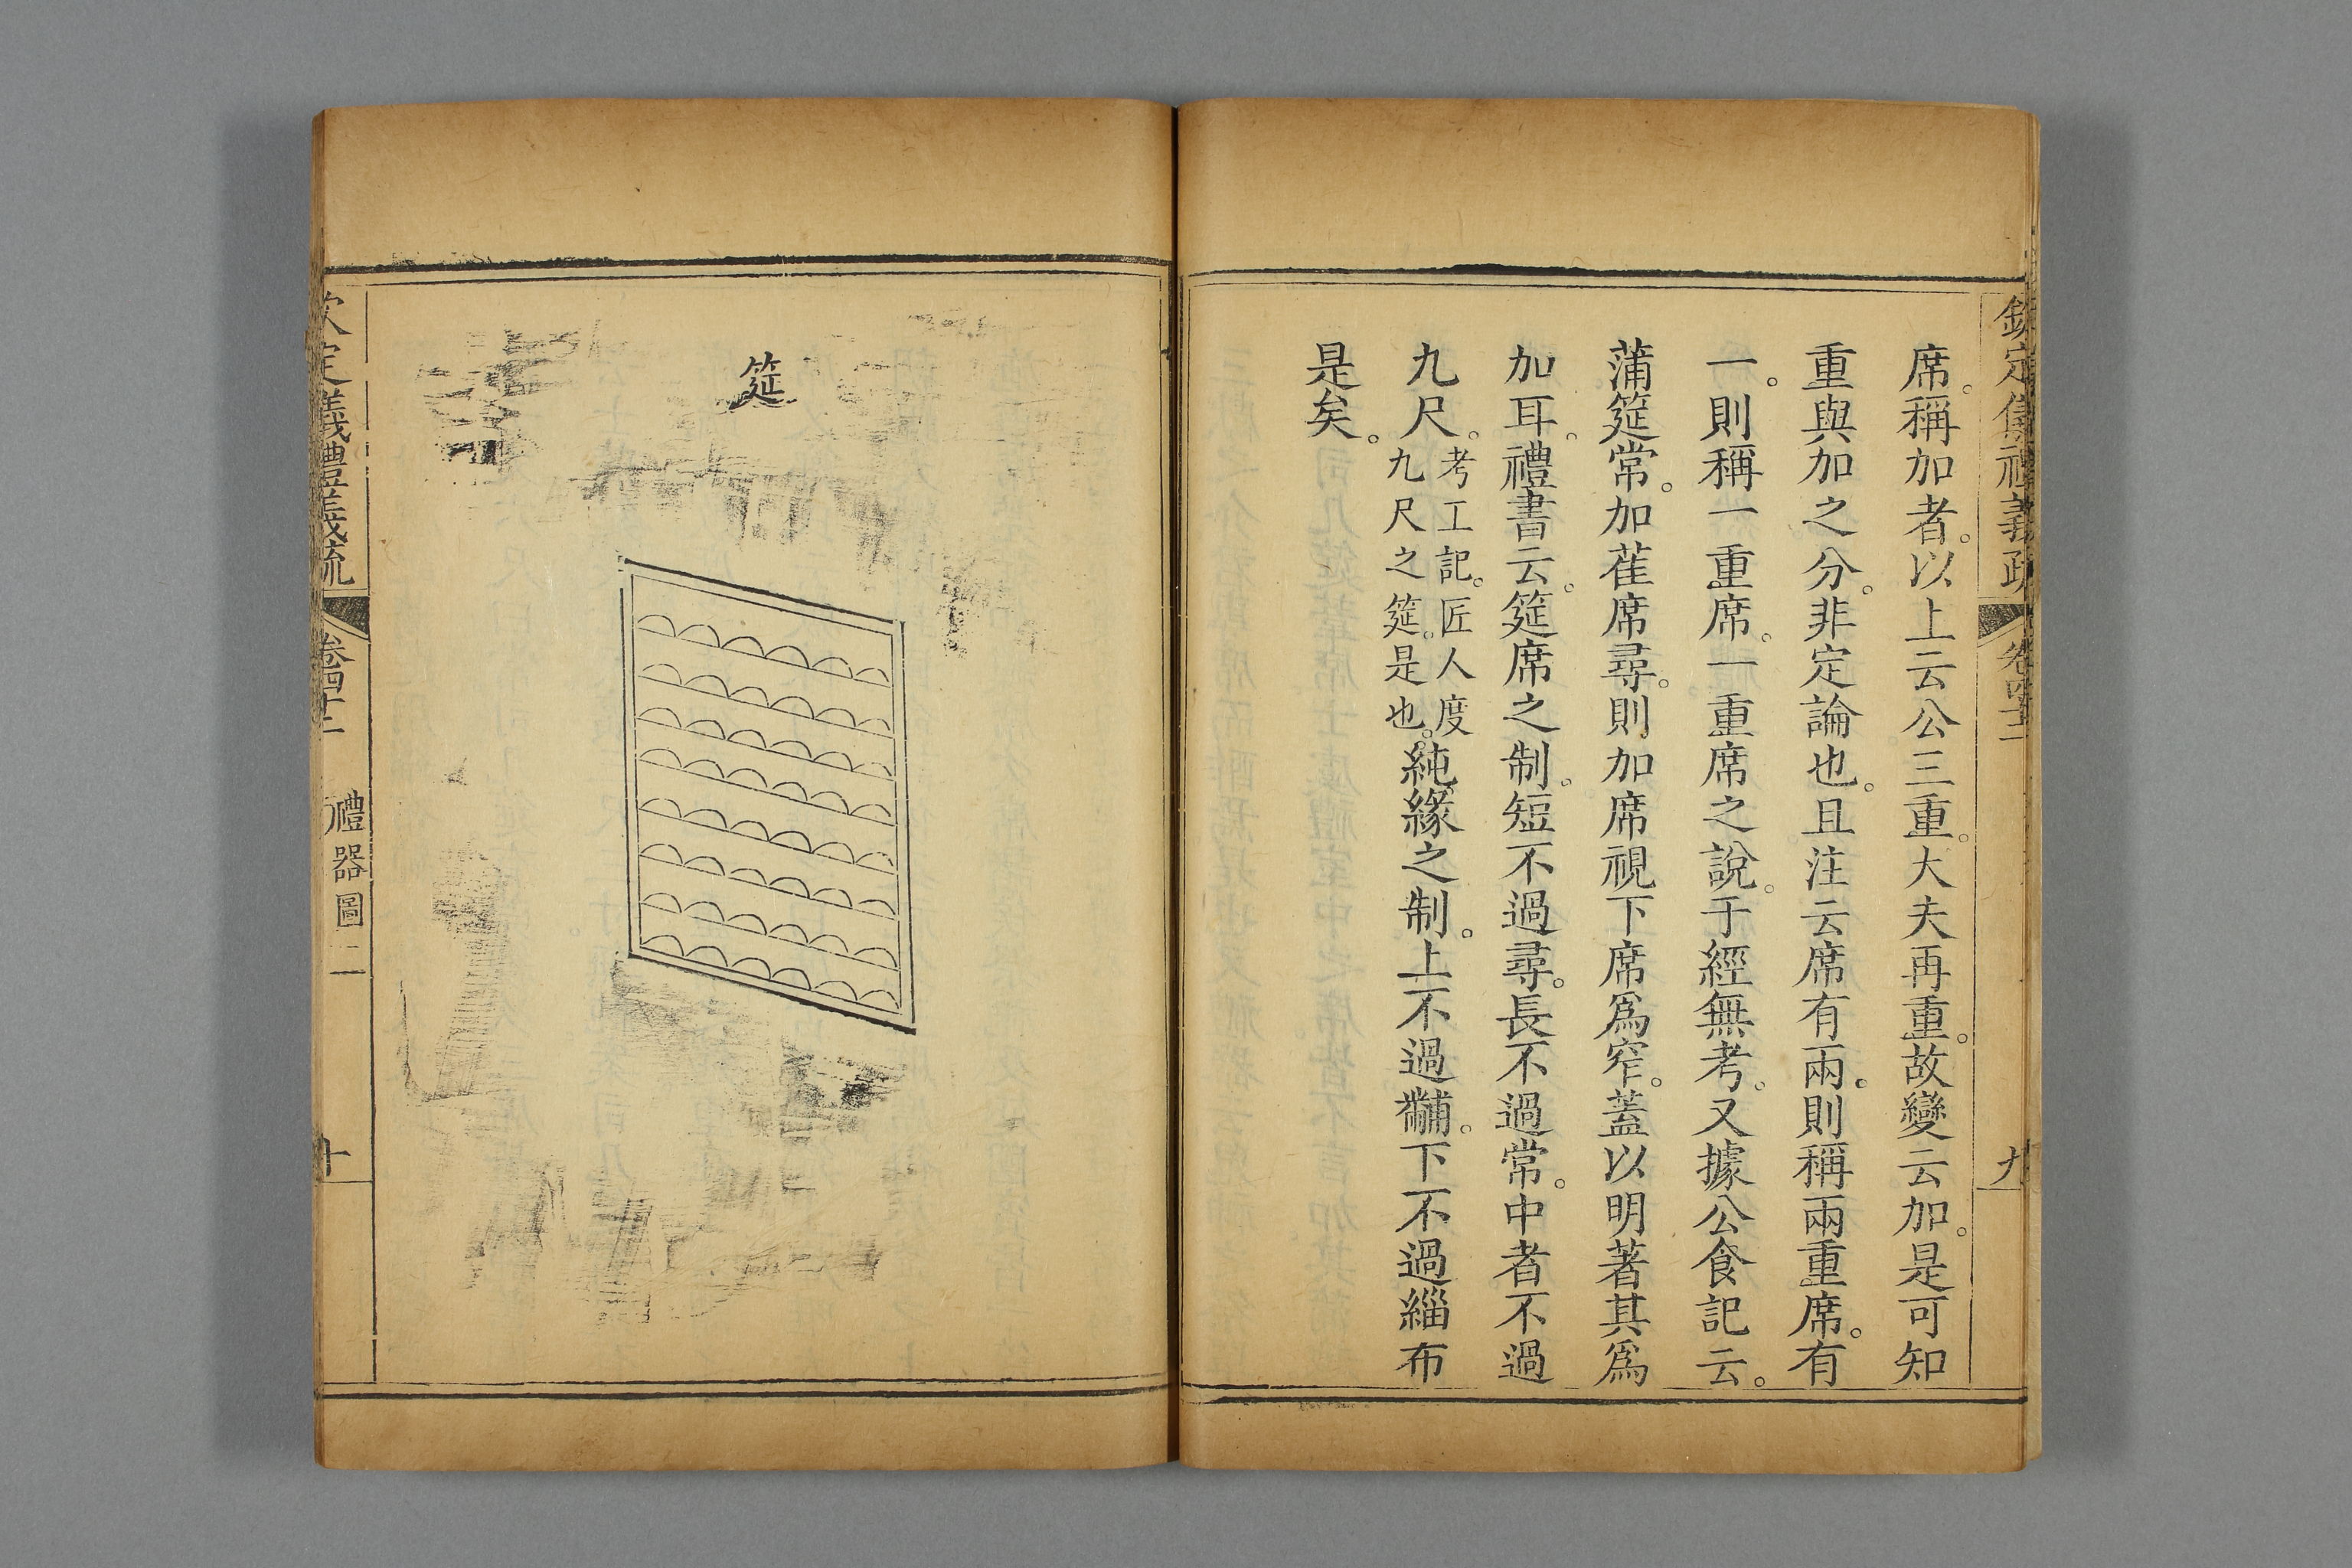 欽定儀禮義疏 卷四十二 九
席。稱加者。以上云公三重。大夫再重。故變云加。是可知
重與加之分。非定論也。且注云席有兩。則稱兩重席。有
一。則稱一重席。一重席之說。于經無考。又據公食記云。
蒲筵常。加萑席尋。則加席視下席爲窄。蓋以明著其爲
加耳。禮書云。筵席之制。短不過尋。長不過常。中者不過
九尺。考工記。匠人度九尺之筵。是也。純緣之制。上不過黼。下不過緇布
是矣。
筵
欽定儀禮義疏 卷四十二 禮器圖二 十